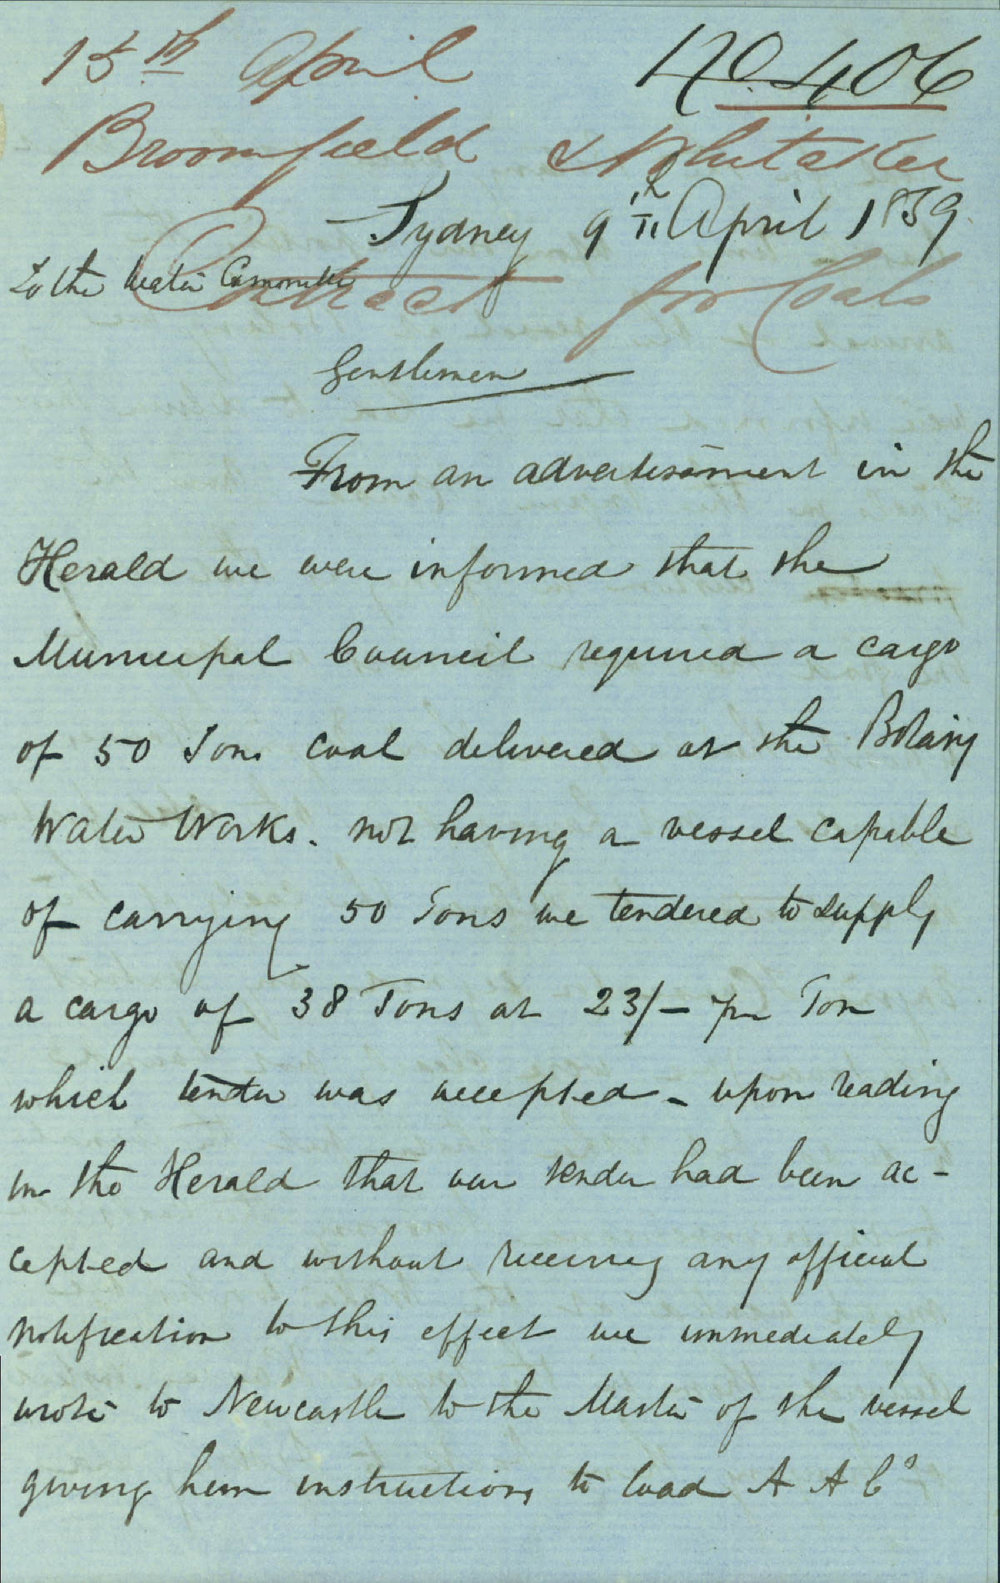 15th April
No. 406
Broomfield & Whitaker
Sydney 9th April 1859
To the Water Committee
Contract for Coals
Gentlemen
From an advertisement in the
Herald we were informed that the
Municipal Council required a cargo
of 50 Tons coal delivered at the Botany
Water Works. not having a vessel capable
of carrying 50 Tons we tendered to supply
a cargo of 38 Tons at 23/- per Ton
which tender was accepted - upon reading
in the Herald that our tender had been ac-
cepted and without receiving any official
notification to this effect we immediately
wrote to Newcastle to the Master of the vessel
giving him instructions to load A A Co